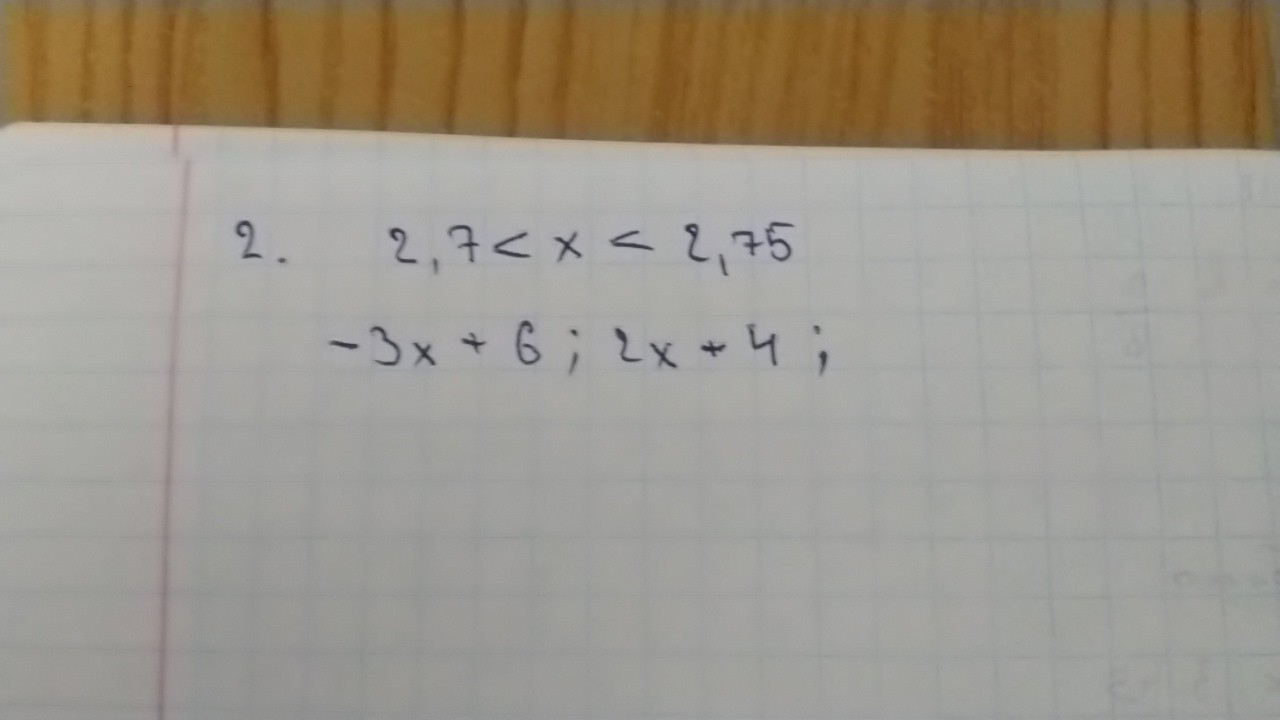 2. 2,7 < x < 2,75
-3x + 6 ; 2x + 4 ;